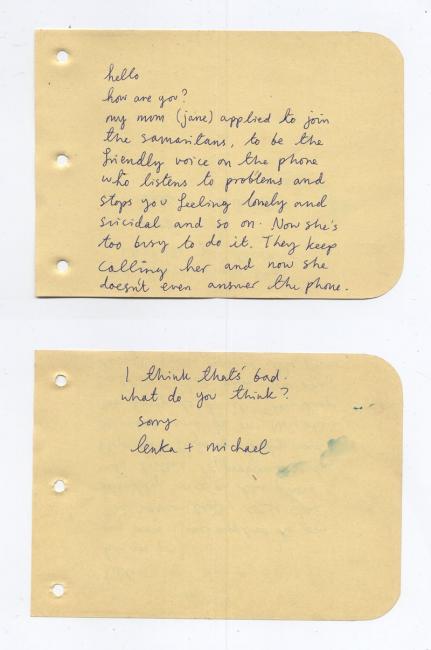 hello
how are you?
my mum (jane) applied to join
the samaritans, to be the
friendly voice on the phone
who listens to problems and
stops you feeling lonely and
suicidal and so on. Now she's
too busy to do it. They keep
calling her and now she
doesn't even answer the phone.
I think that's bad.
what do you think?
sorry
lenka + michael